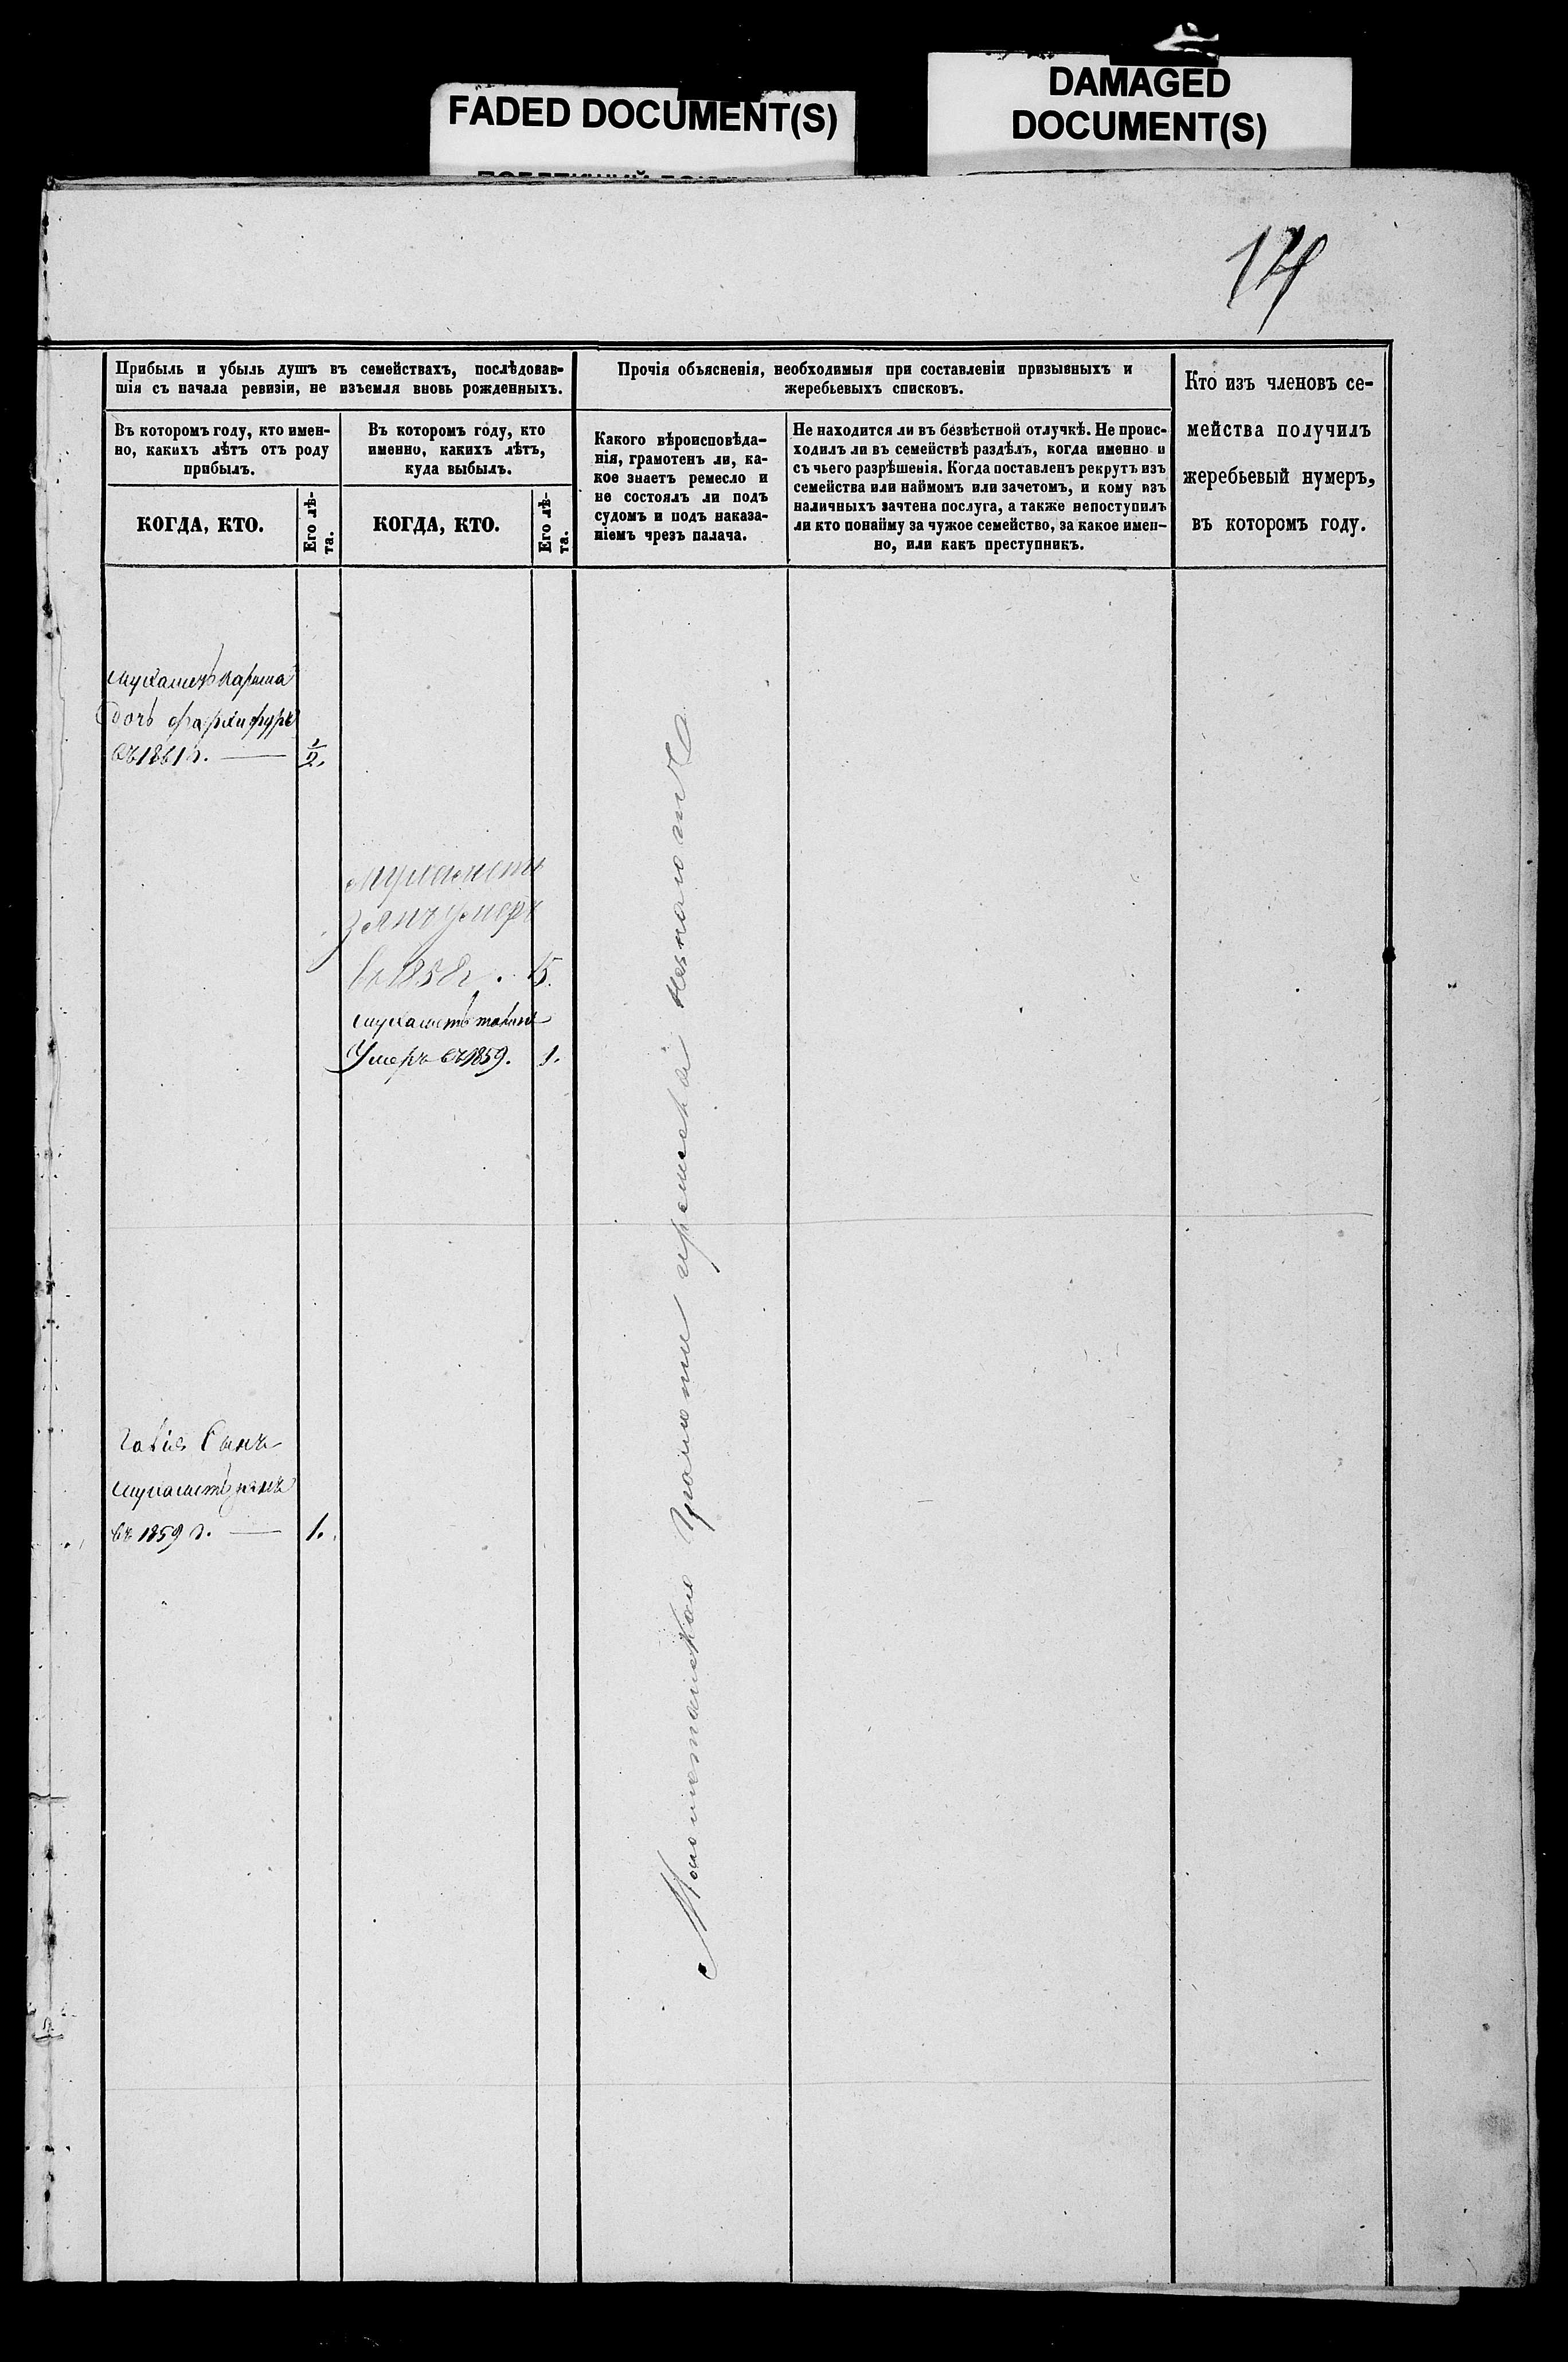 FADED DOCUMENT(S)
DAMAGED
DOCUMENT(S)
14
Прибыль и убыль душъ въ семействахъ, послѣдовав-
шія съ начала ревизіи, не изъемля вновь рожденныхъ.
Въ которомъ году, кто имен-
но, какихъ лѣтъ отъ роду
прибылъ.
КОГДА, КТО.
Его лѣ-
та.
Въ которомъ году, кто
именно, какихъ лѣтъ,
куда выбылъ.
КОГДА, КТО.
Его лѣ-
та.
Прочія объясненія, необходимыя при составленіи призывныхъ и
жеребьевыхъ списковъ.
Какого вѣроисповѣда-
нія, грамотенъ ли, ка-
кое знаетъ ремесло и
не состоялъ ли подъ
судомъ и подъ наказа-
ніемъ чрезъ палача.
Не находится ли въ безвѣстной отлучкѣ. Не проис-
ходилъ ли въ семействѣ раздѣлъ, когда именно и
съ чьего разрѣшенія. Когда поставленъ рекрутъ изъ
семейства или наймомъ или зачетомъ, и кому изъ
наличныхъ зачтена послуга, а также непоступилъ
ли кто понайму за чужое семейство, за какое имен-
но, или какъ преступникъ.
Кто изъ членовъ се-
мейства получилъ
жеребьевый нумеръ,
въ которомъ году.
дочь
въ 1861 г. — 1/2.
Мухаметь
зянъ умеръ
въ 1858 г. 15.
Мухаметь
Умеръ въ 1859. 1.
Сынъ
Мухаметьзянъ
въ 1859 г. — 1.
Магометанской грамоты